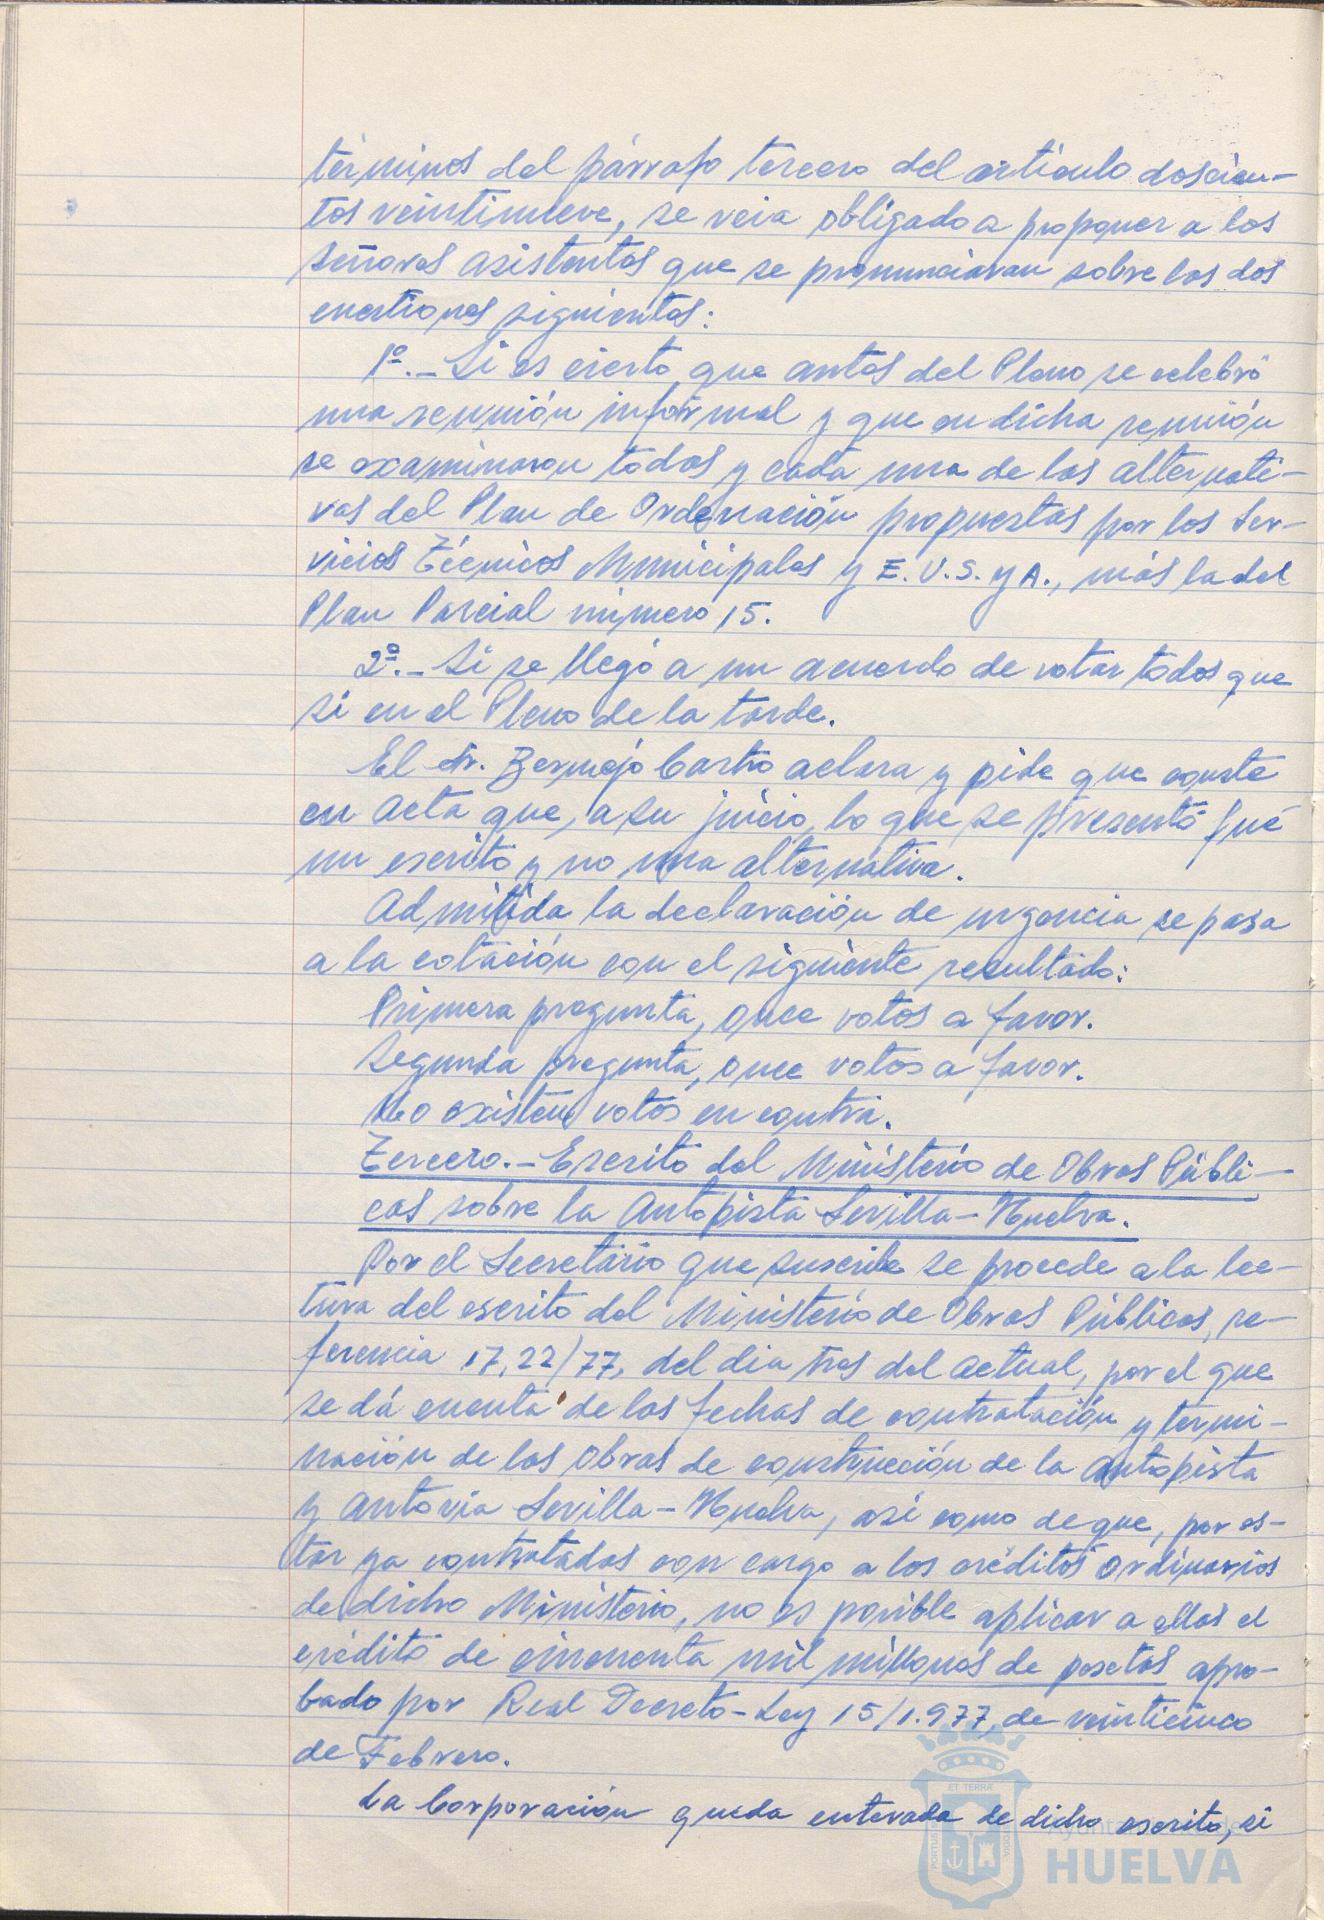 términos del párrafo tercero del artículo doscien-
tos veintinueve, se veia obligado a proponer a los
señores asistentes que se pronunciaran sobre las dos
cuestiones siguientes:
1º.- Si es cierto que antes del Pleno se celebró
una reunión informal y que en dicha reunión
se examinaron todas y cada una de las alternati-
vas del Plan de Ordenación propuestas por los Ser-
vicios Técnicos Municipales y E.V.S. y A., más la del
Plan Parcial número 15.
2º.- Si se llegó a un acuerdo de votar todos que
si en el Pleno de la tarde.
El Sr. Bermejo Castro aclara y pide que conste
en acta que, a su juicio, lo que se presentó fué
un escrito y no una alternativa.
Admitida la declaración de urgencia se pasa
a la votación con el siguiente resultado:
Primera pregunta, once votos a favor.
Segunda pregunta, once votos a favor.
No existen votos en contra.
Tercero.- Escrito del Ministerio de Obras Públi-
cas sobre la Autopista Sevilla-Huelva.
Por el Secretario que suscribe se procede a la lec-
tura del escrito del Ministerio de Obras Públicas, re-
ferencia 17,22/77, del dia tres del actual, por el que
se dá cuenta de las fechas de contratación y termi-
nación de las obras de construcción de la autopista
y autovia Sevilla-Huelva, asi como de que, por es-
tar ya contratadas con cargo a los créditos ordinarios
de dicho Ministerio, no es posible aplicar a ellas el
crédito de cincuenta mil millones de pesetas apro-
bado por Real Decreto-Ley 15/1.977, de veinticinco
de Febrero.
La Corporación queda enterada de dicho escrito, si
ET TERRÆ
PORTUS
Ayuntamiento de
HUELVA